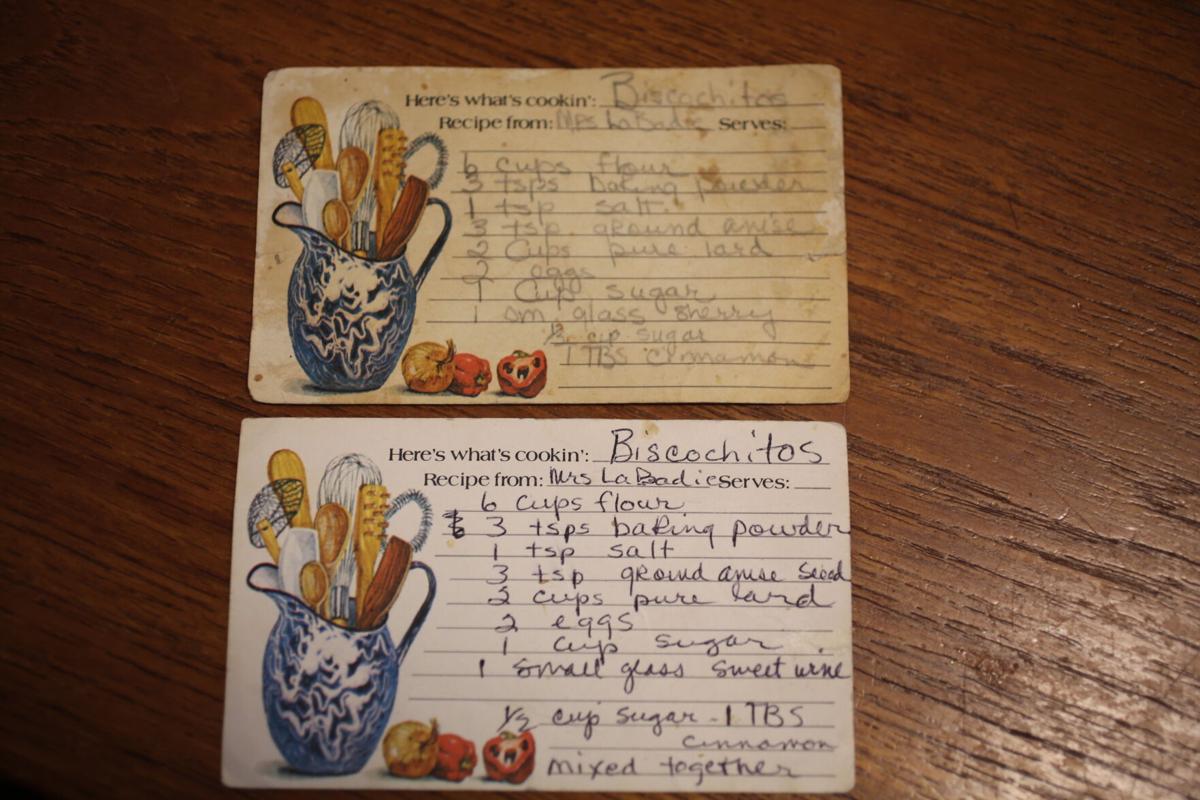 Here's what's cookin': Biscochitos
Recipe from: Mrs LaBadie Serves:
6 cups flour
3 tsps baking powder
1 tsp salt
3 tsp ground anise
2 Cups pure lard
2 eggs
1 Cup sugar
1 sm. glass Sherry
1/2 cup sugar
1 TBS cinnamon
Here's what's cookin': Biscochitos
Recipe from: Mrs LaBadie Serves:
6 cups flour
3 tsps baking powder
1 tsp salt
3 tsp ground anise seed
2 cups pure lard
2 eggs
1 cup sugar
1 small glass sweet wine
1/2 cup sugar - 1 TBS
cinnamon
mixed together